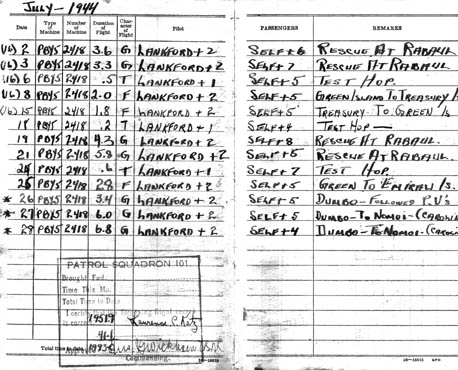 JULY - 1944
Date Type of Machine Number of Machine Duration of Flight Character of Flight Pilot PASSENGERS REMARKS
(16) 2 PBY5 2418 3.6 G LANKFORD + 2 SELF + 6 RESCUE AT RABAUL
3 PBY5 2418 3.3 G LANKFORD + 2 SELF + 7 RESCUE AT RABAUL
6 PBY5 2418 .5 T LANKFORD + 1 SELF + 5 TEST HOP.
8 PBY5 2418 2.0 F LANKFORD + 2 SELF + 5 GREEN ISLAND TO TREASURY
15 PBY5 2418 1.8 F LANKFORD + 2 SELF + 5 TREASURY TO GREEN IS
2418 .2 T LANKFORD + 1 SELF + 4 TEST HOP —
19 PBY5 2418 4.3 G LANKFORD + 2 SELF + 8 RESCUE AT RABAUL.
21 PBY5 2418 5.8 G LANKFORD + 2 SELF + 5 RESCUE AT RABAUL.
PBY5 2418 .6 T LANKFORD + 1 SELF + 7 TEST HOP.
25 PBY5 2418 F LANKFORD + 2 SELF + 5 GREEN TO EMIRAU IS.
* 26 PBY5 2418 3.4 G LANKFORD + 2 SELF + 5 DUMBO - FOLLOWED P.V's
* 27 PBY5 2418 6.0 G LANKFORD + 2 SELF + 5 DUMBO - TO NOMOI -
* PBY5 2418 6.8 G LANKFORD + 2 SELF + 4 DUMBO - TO NOMOI -
PATROL SQUADRON 101
Brought Fwd.
Time This Mo.
Total Time to Date
I certify
is correct
41.1
Total time to date
Approved
Commanding.